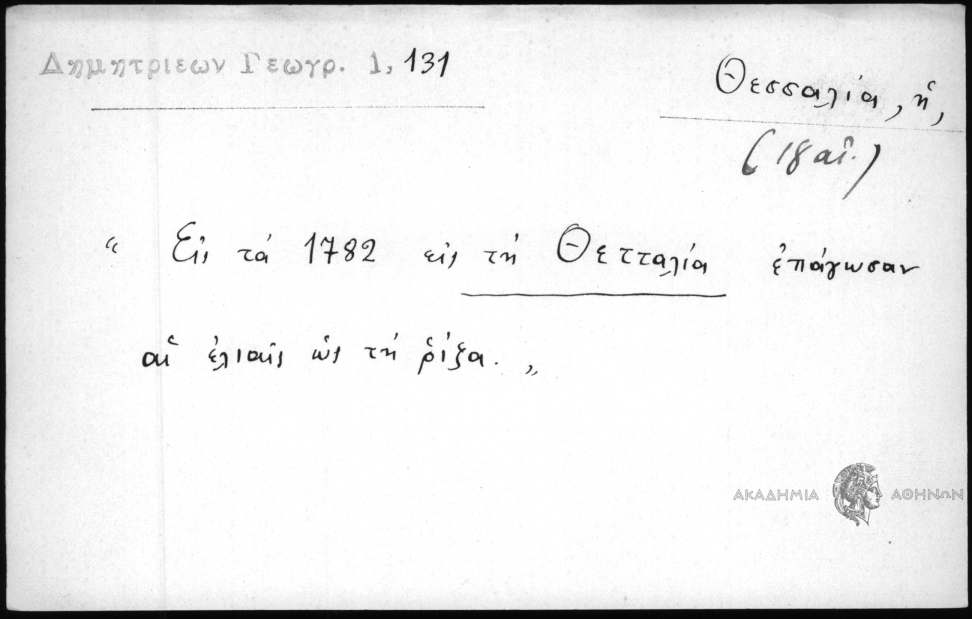 Δημητριεων Γεωγρ. 1, 131
Θεσσαλία, ἡ,
(18 αἰ.)
“ Εἰς τά 1782 εἰς τή Θετταλία ἐπάγωσαν
αἱ ἐλιαῖς ὡς τή ῥίζα. „
ΑΚΑΔΗΜΙΑ ΑΘΗΝΩΝ